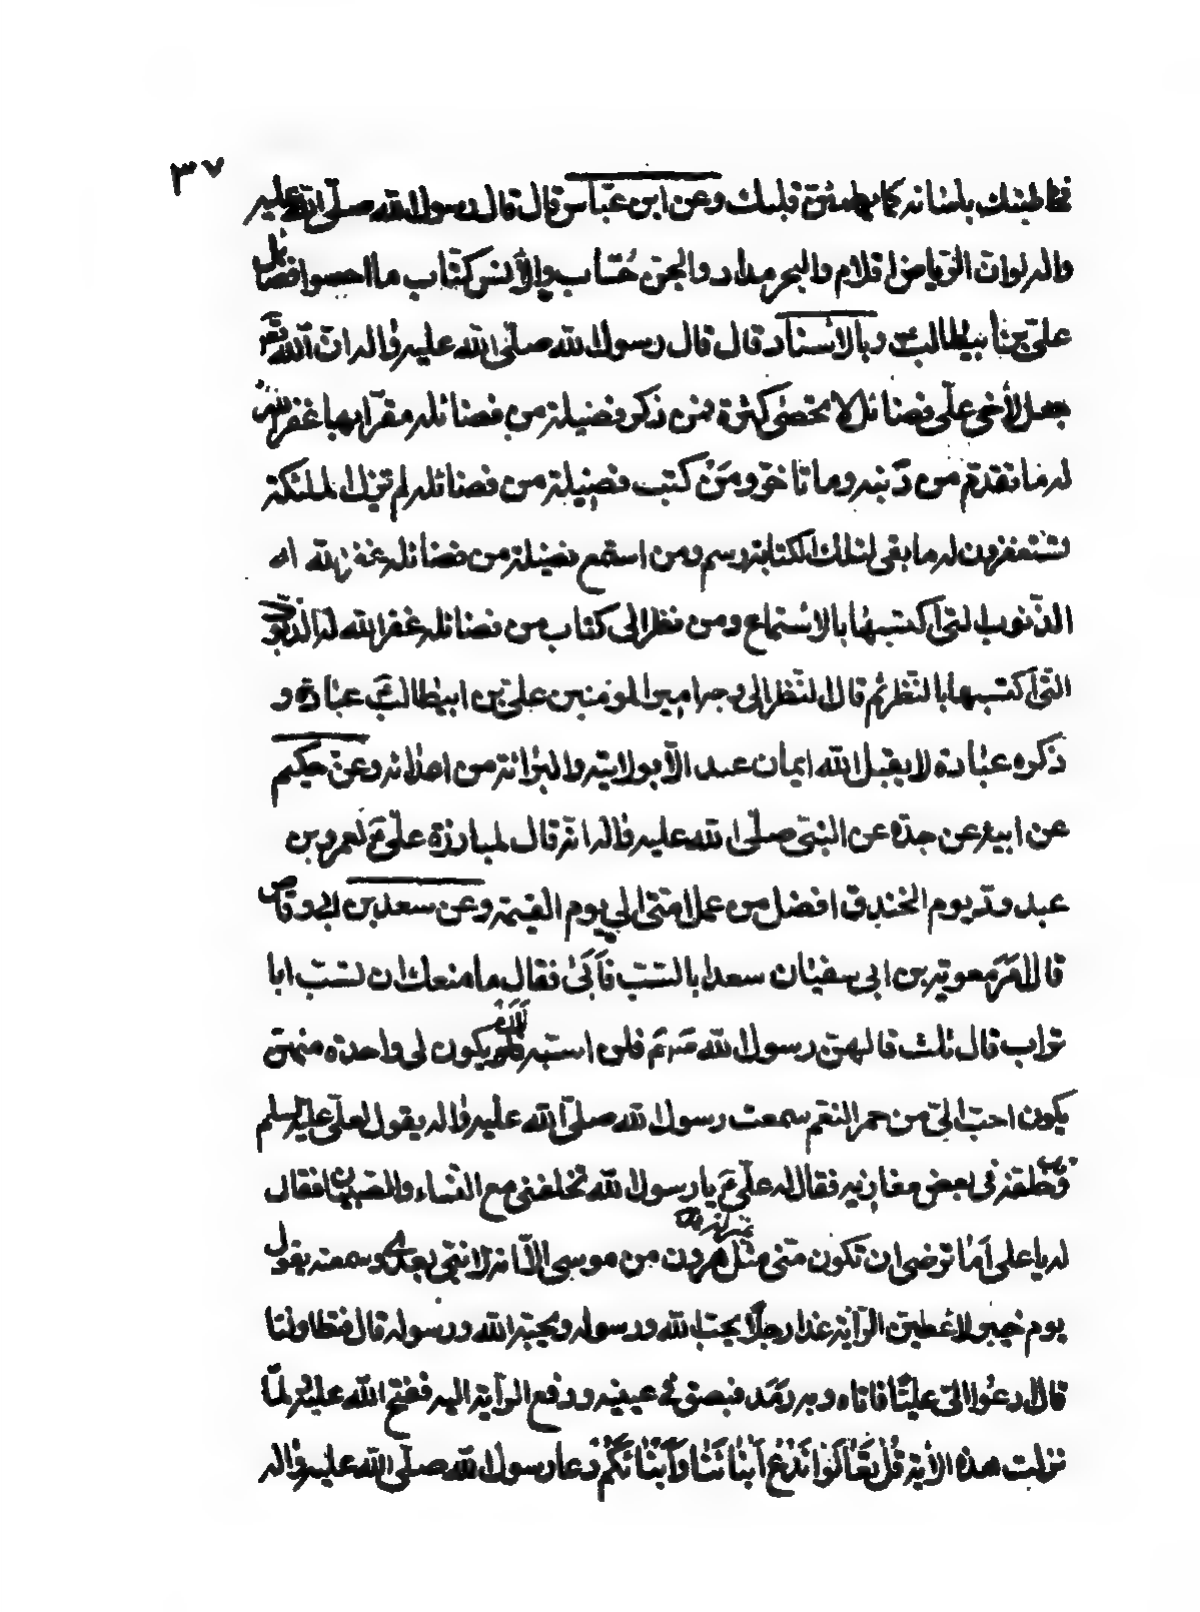 ٣٧
فخاطبتك بلسانه كما يطمئن قلبك وعن ابن عبّاس قال قال رسول الله صلّى الله عليه
واله لو ان الرياض اقلام والبحر مداد والجن حسّاب والأنس كتّاب ما احصوا فضائل
علي بن أبيطالب وبالاسناد قال قال رسول الله صلّى الله عليه واله ان الله تعالى
جعل لأخى علّى فضائل لا تحصى كثرة فمن ذكر فضيلة من فضائله مقرّا بها غفر الله
له ما تقدّم من ذنبه وما تأخر ومن كتب فضيلة من فضائله لم تزل الملئكة
تستغفرون له ما بقى لتلك الكتابة رسم ومن استمع فضيلة من فضائله غفر الله له
الذّنوب التى اكتسبها بالاستماع ومن نظر الى كتاب من فضائله غفر الله له الذنوب
التى اكتسبها بالنّظر ثم قال النّظر الى وجه امير المؤمنين على بن ابيطالب عبادة و
ذكره عبادة لا يقبل الله ايمان عبد الّا بولايته والبرائة من اعدائه وعن حكيم
عن ابيه عن جدّه عن النبّى صلّى الله عليه واله انّه قال لمبارزة علّى لعمرو بن
عبد ودّ يوم الخندق افضل من عمل امتى الى يوم القيمة وعن سعد بن ابى وقاص
قال امر معوية بن ابى سفيان سعدا بالسّب فأبى فقال ما منعك ان تسبّ ابا
تراب قال ثلث قالهنّ رسول الله فلن اسبّه لان يكون لى واحدة منهنّ
يكون احبّ الىّ من حمر النعم سمعت رسول الله صلّى الله عليه واله يقول لعلّى عليه السلم
وخلّفه فى بعض مغازيه فقال له علّى يا رسول الله تخلفنى مع النّساء والصّبيان فقال
له يا على أما ترضى ان تكون منّى بمنزلة هرون من موسى الّا انه لا نبىّ بعدى وسمعته يقول
يوم خيبر لاعطينّ الرّاية غدا رجلا يحبّ الله ورسوله ويحبّه الله ورسوله قال فتطاولنا
قال ادعوا الىّ عليّا فاتاه وبه رمد فبصق فى عينيه ودفع الرّاية اليه ففتح الله عليه ولمّا
نزلت هذه الأية قل تعالوا ندع أبنائنا وأبنائكم دعا رسول الله صلّى الله عليه واله